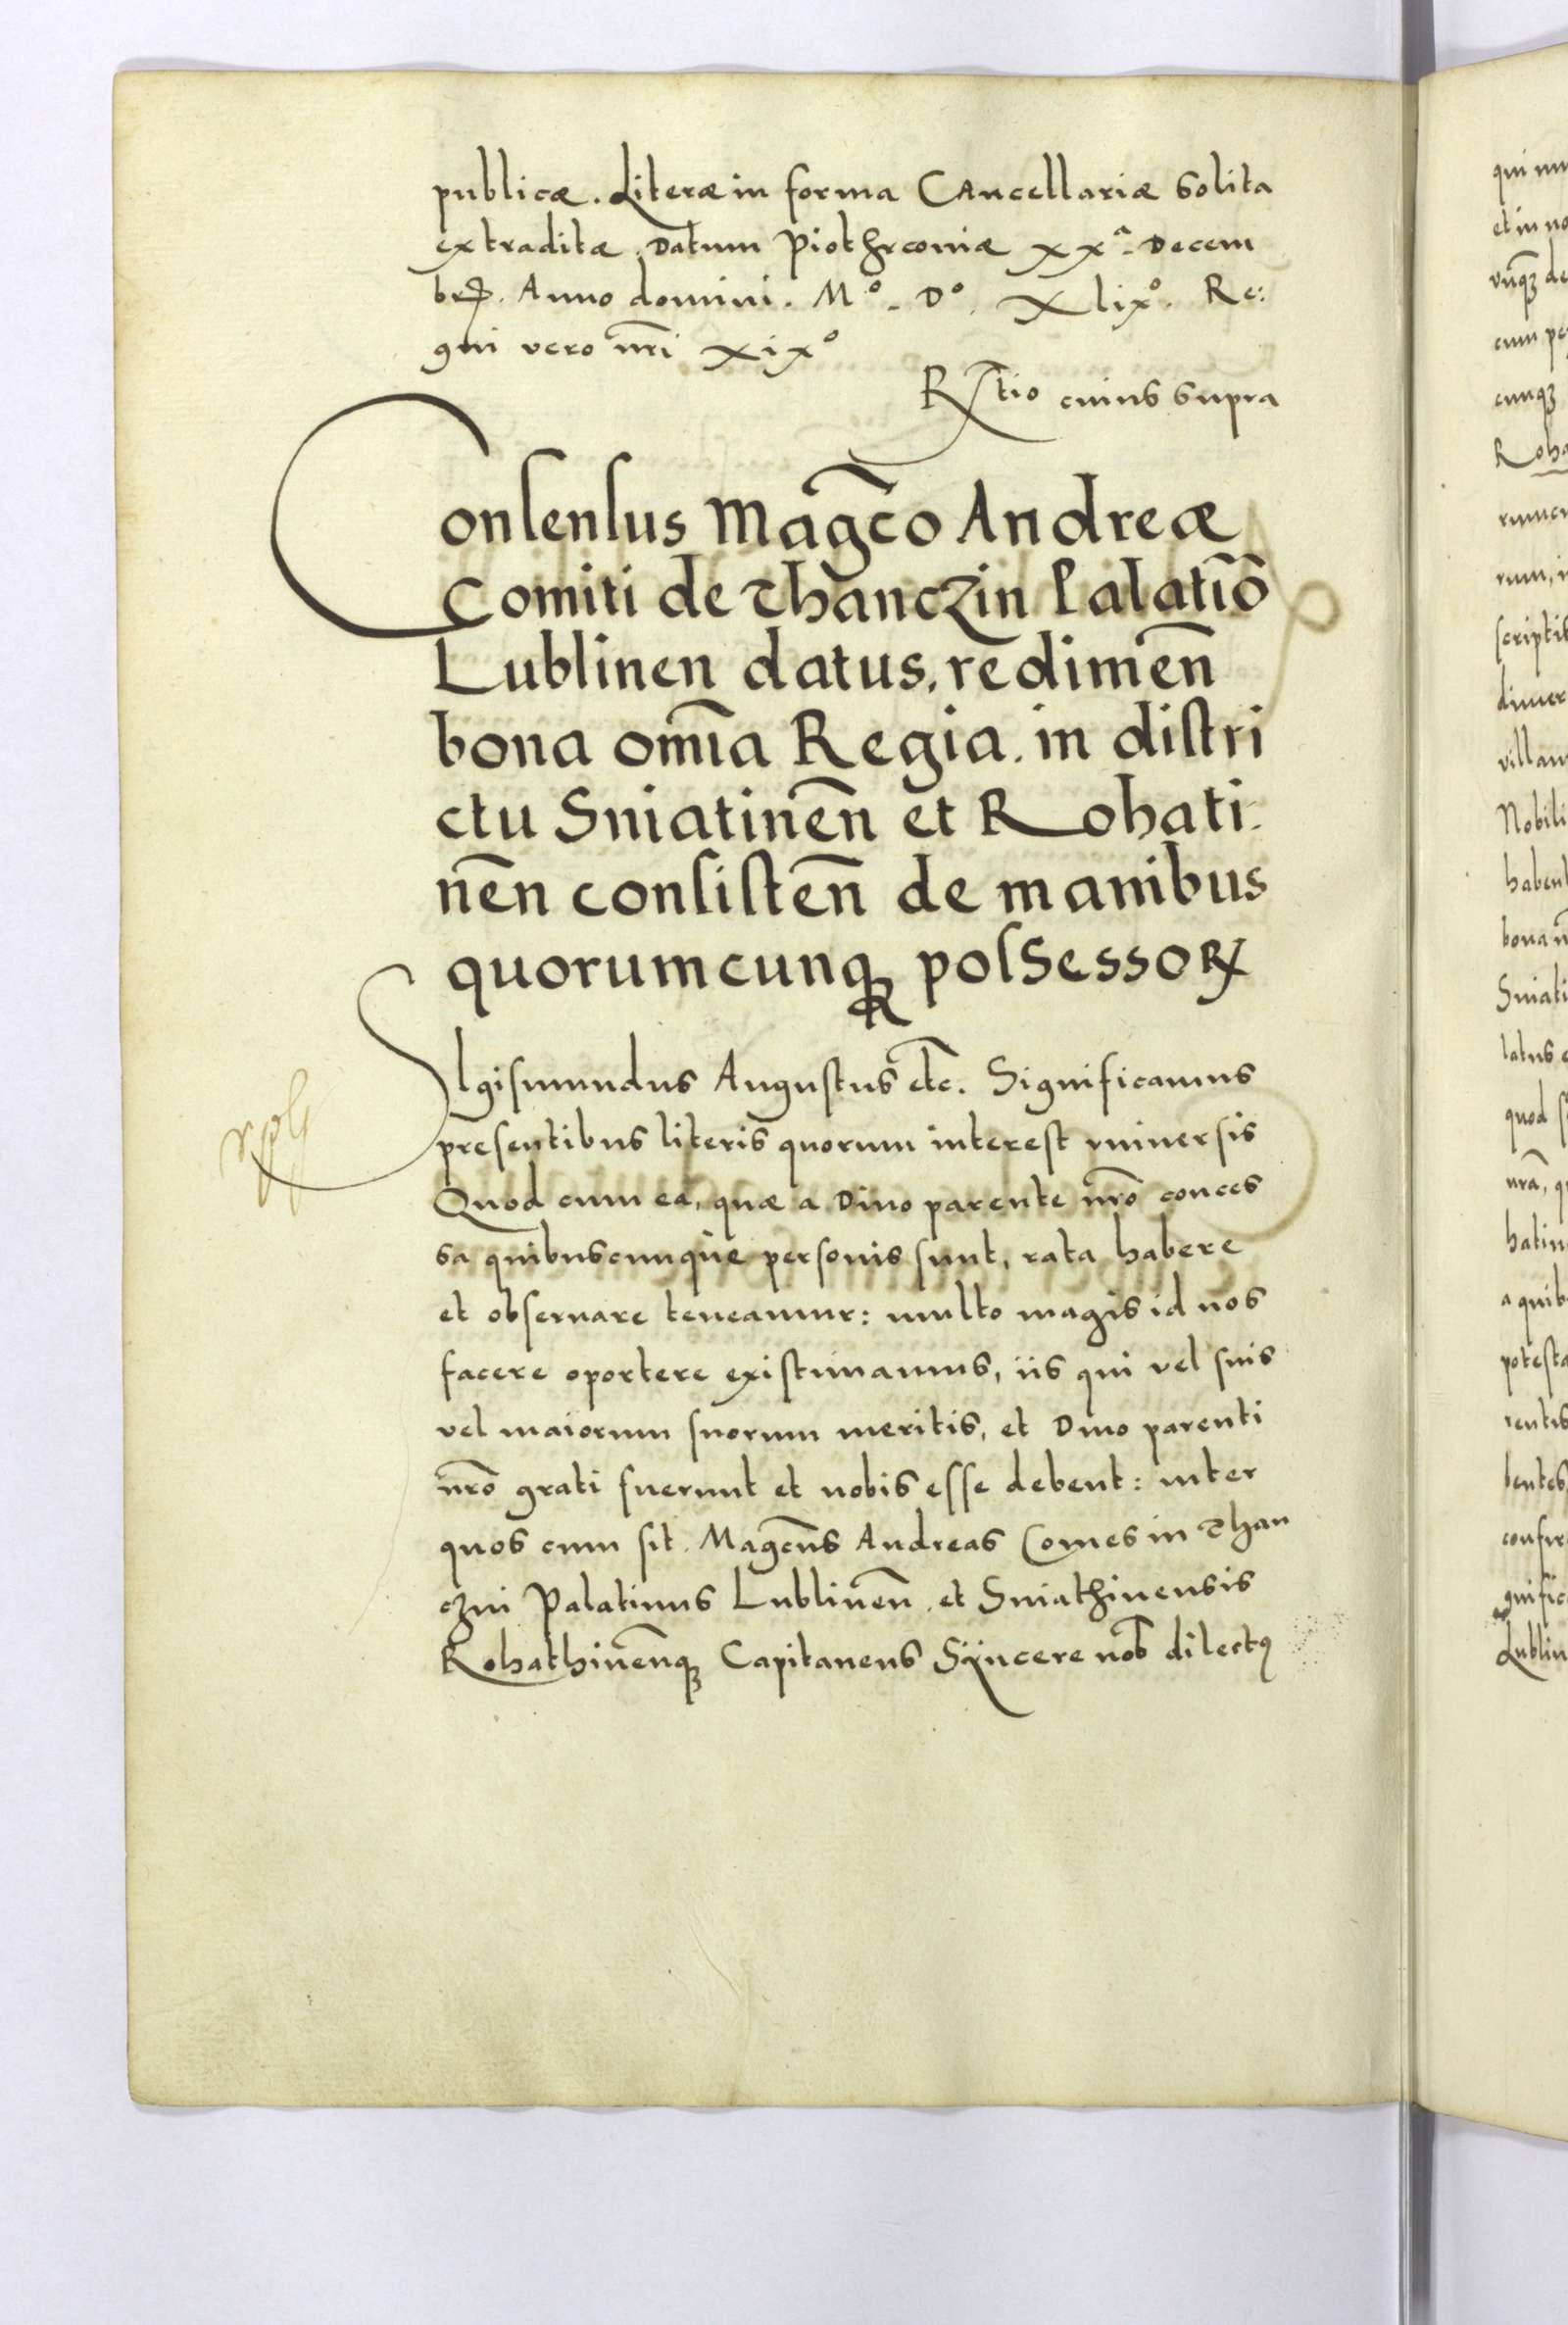 publicæ. Literæ in forma Cancellariæ solita
extraditæ. Datum Piothrconiæ xxª. Decem
brꝭ. Anno domini. Mº. Dº. Xlixº. Re:
gni vero nr̃i xixº
Rꝭtio cuius supra
Conſenſus Magc̃o Andreæ
Comiti de Thanczin Palatiõ
Lublinen datus, redimen̄
bona om̃ia Regia. in diſtri
ctu Sniatinen̄ et Rohati-
nen̄ conſiſten̄ de manibus
quorumcunqꝫ poſsessoꝝ
Sigiſmundus Auguſtus etc̃. Significamus
preſentibus literis quorum intereſt vniuerſis
Quod cum ea, quæ a Diuo parente nr̃o conces
sa quibuscunque perſonis ſunt, rata habere
et obſeruare teneamur: multo magis id nos
facere oportere exiſtimamus, iis qui vel ſuis
vel maiorum ſuorum meritis, et Diuo parenti
nr̃o grati fuerunt et nobis eſſe debent: inter
quos cum ſit. Magc̃us Andreas Comes in Than
czin Palatinus Lublinen̄. et Sniathinensis
Rohathinen̄qꝫ Capitaneus Sÿncere nob̃ dilectꝯ
qui
et in no
vnq̃ꝫ de
cum pe
cunqꝫ
Roha
rum, i
ſcriptis
villam
Nobili
habent
bona n̄
Sniati
latus
quod
nr̃a, q
hatin
a quib
poteſta
rentis
bentes
confir
gnific
Lublin